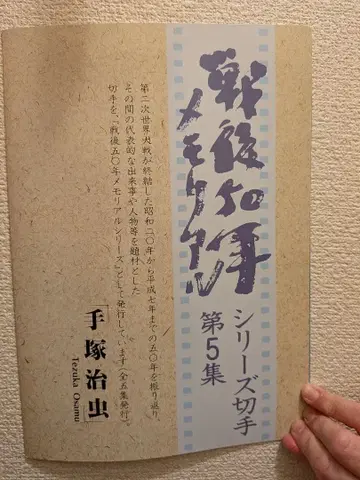 戦後50年
メモリアル
シリーズ切手
第5集
第二次世界大戦が終結した昭和二〇年から平成七年までの五〇年を振り返り、
その間の代表的な出来事や人物等を題材とした
切手を、「戦後五〇年メモリアルシリーズ」として発行しています(全五集発行)。
「手塚治虫」
Tezuka Osamu